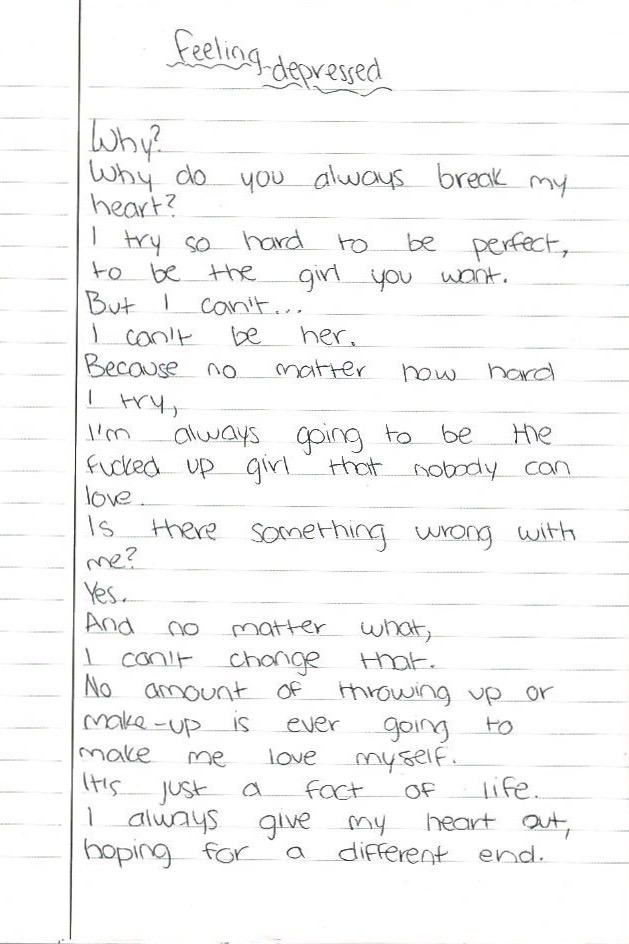 Feeling depressed
Why?
Why do you always break my
heart?
I try so hard to be perfect,
to be the girl you want.
But I can't...
I can't be her.
Because no matter how hard
I try,
I'm always going to be the
fucked up girl that nobody can
love.
Is there something wrong with
me?
Yes.
And no matter what,
I can't change that.
No amount of throwing up or
make-up is ever going to
make me love myself.
It's just a fact of life.
I always give my heart out,
hoping for a different end.